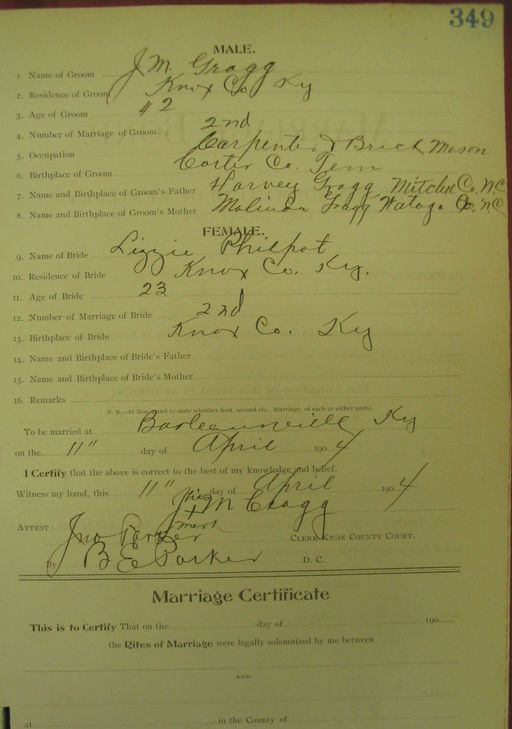 349
MALE.
1. Name of Groom J. M. Gragg
2. Residence of Groom Knox Co Ky
3. Age of Groom 42
4. Number of Marriage of Groom 2nd
5. Occupation Carpenter & Brick Mason
6. Birthplace of Groom Carter Co. Tenn
7. Name and Birthplace of Groom's Father Harvey Gragg Mitchell Co, N.C
8. Name and Birthplace of Groom's Mother Malinda Gragg Watoga Co, N.C
FEMALE.
9. Name of Bride Lizzie Philpot
10. Residence of Bride Knox Co. Ky.
11. Age of Bride 23
12. Number of Marriage of Bride 2nd
13. Birthplace of Bride Knox Co. Ky
14. Name and Birthplace of Bride's Father
15. Name and Birthplace of Bride's Mother
16. Remarks
N. B.—At Nos. and 12 state whether first, second etc., Marriage, of each or either party.
To be married at Ky
on the 11" day of April 1904
I Certify that the above is correct to the best of my knowledge and belief.
Witness my hand, this 11" day of April 1904
J. M. Gragg
his
x
mark
ATTEST: Jno Parker CLERK KNOX COUNTY COURT.
By B E Parker D. C.
Marriage Certificate
This is to Certify That on the day of 190
the Rites of Marriage were legally solemnized by me between
AND
at in the County of